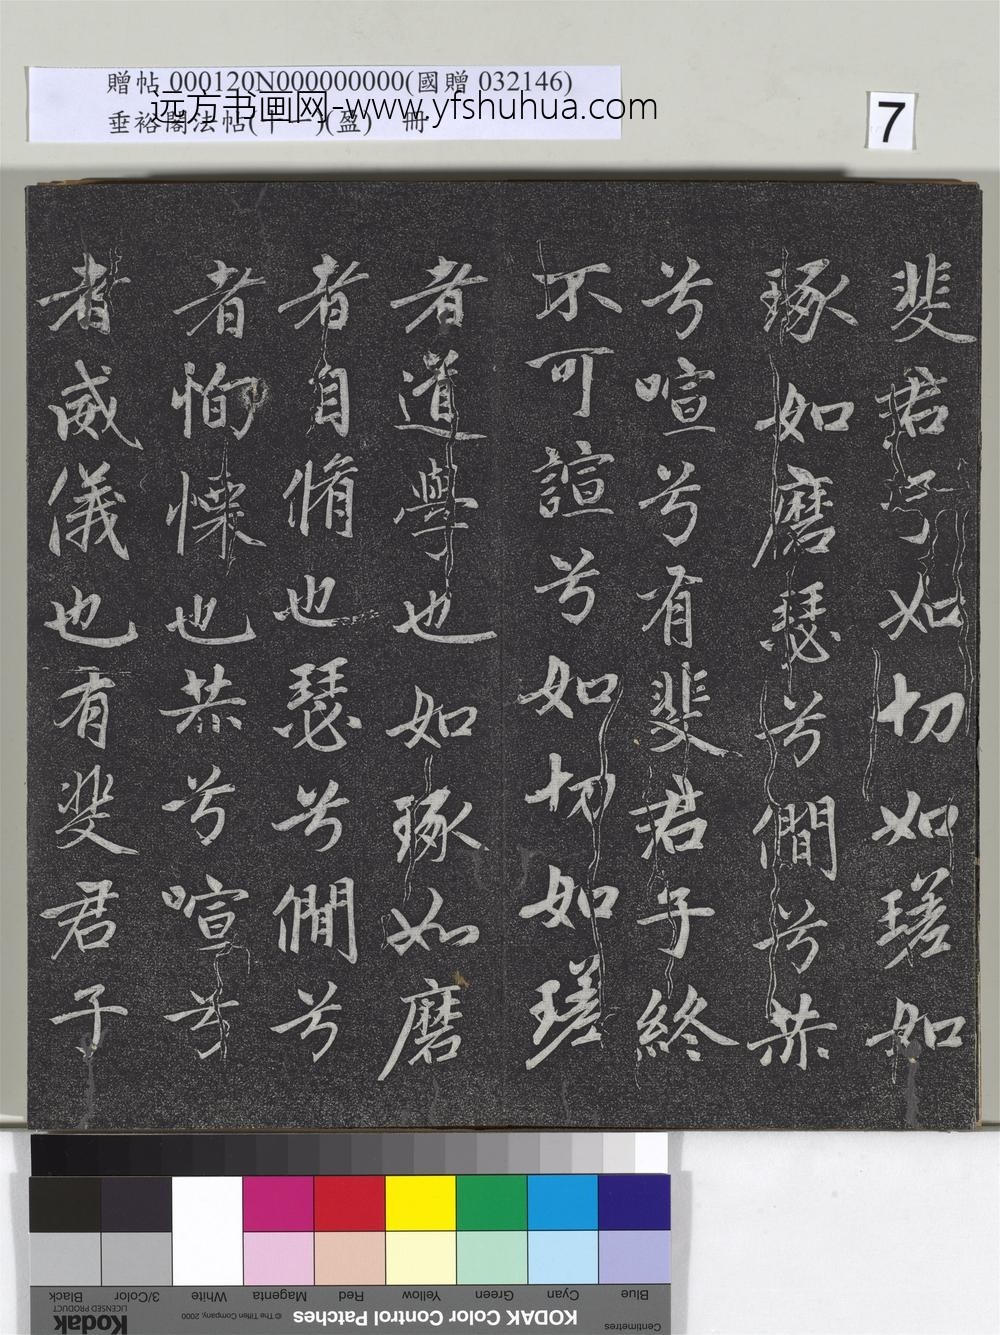 贈帖 000120N000000000(國贈 032146)
远方书画网-www.yfshuhua.com
垂裕閣法帖(十一)(盈) 冊
7
斐君子如切如瑳如
琢如磨瑟兮僩兮赫
兮喧兮有斐君子終
不可諠兮如切如瑳
者道學也如琢如磨
者自脩也瑟兮僩兮
者恂慄也赫兮喧兮
者威儀也有斐君子
Blue Cyan Green Yellow Red Magenta White 3/Color Black
Centimetres KODAK Color Control Patches © The Tiffen Company, 2000 Kodak
LICENSED PRODUCT